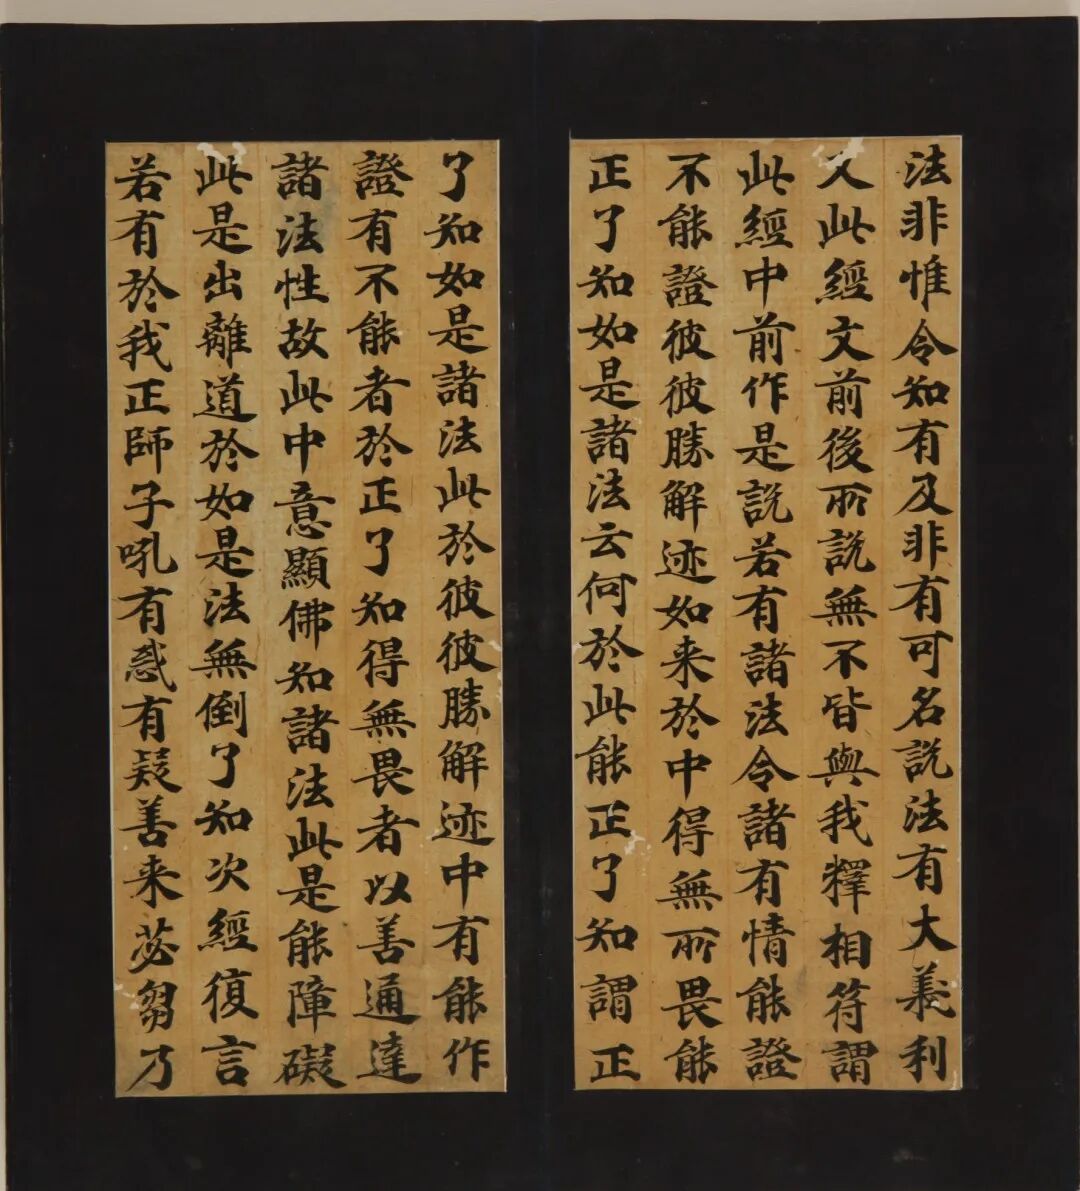 法非惟令知有及非有可名説法有大義利
又此經文前後所説無不皆與我釋相符謂
此經中前作是説若有諸法令諸有情能證
不能證彼彼勝解迹如来於中得無所畏能
正了知如是諸法云何於此能正了知謂正
了知如是諸法此於彼彼勝解迹中有能作
證有不能者於正了知得無畏者以善通達
諸法性故此中意顯佛知諸法此是能障礙
此是出離道於如是法無倒了知次經復言
若有於我正師子吼有惑有疑善来苾芻乃